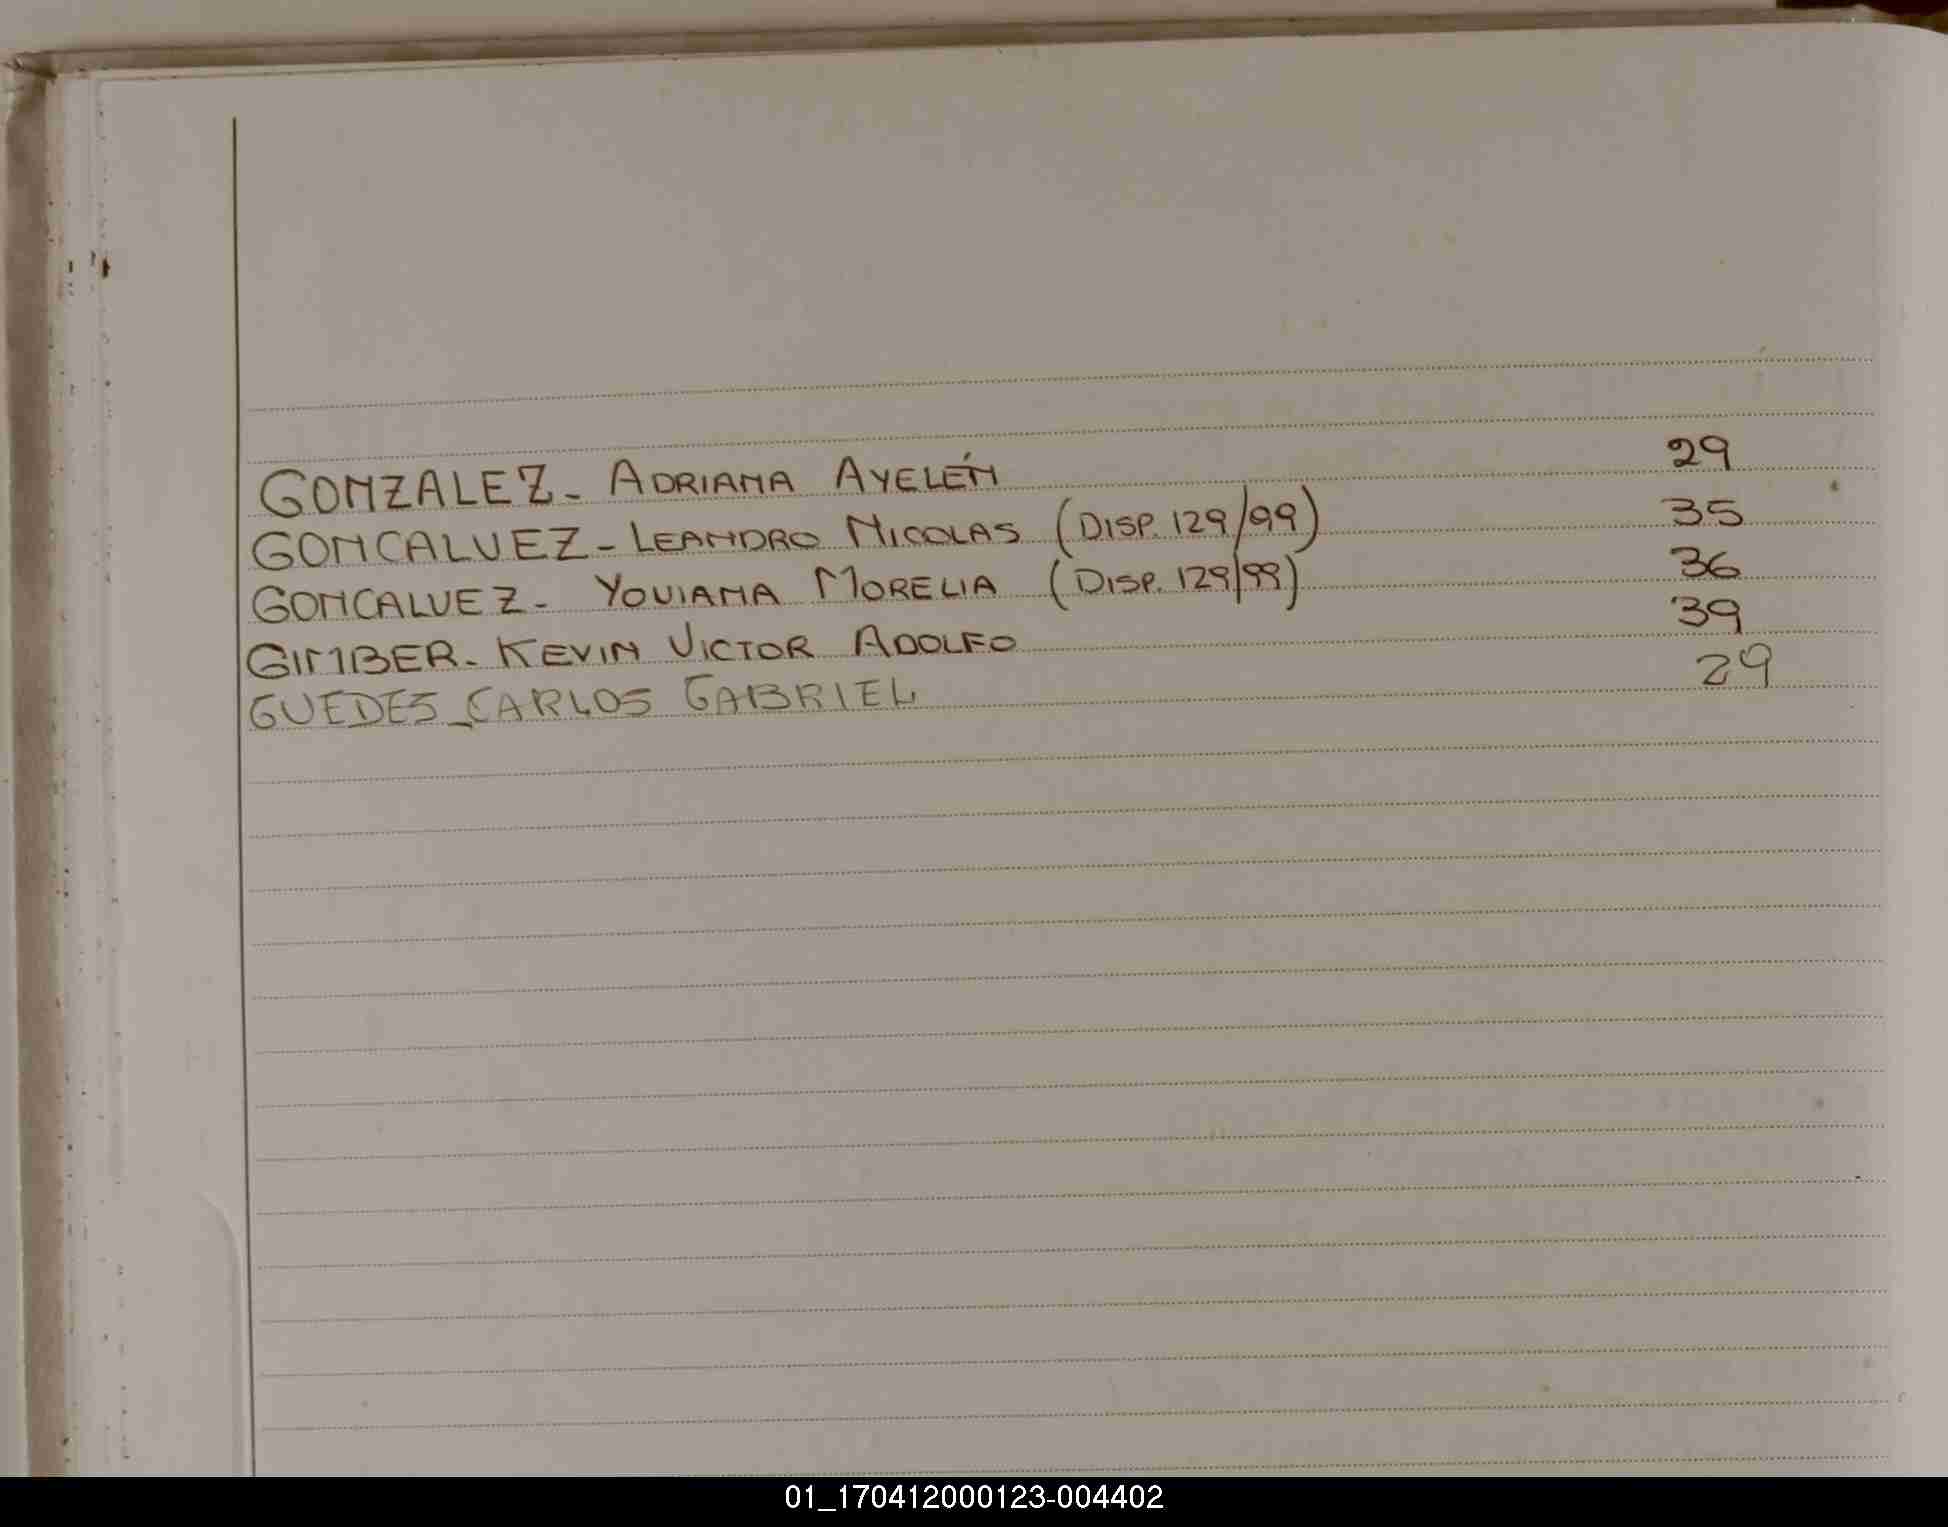 GONZALEZ - ADRIANA AYELÉN 29
GONCALVEZ - LEANDRO NICOLAS (DISP. 129/99) 35
GONCALVEZ - YOVIANA MORELIA (DISP. 129/99) 36
GIMBER - KEVIN VICTOR ADOLFO 39
GUEDES - CARLOS GABRIEL 29
01_170412000123-004402